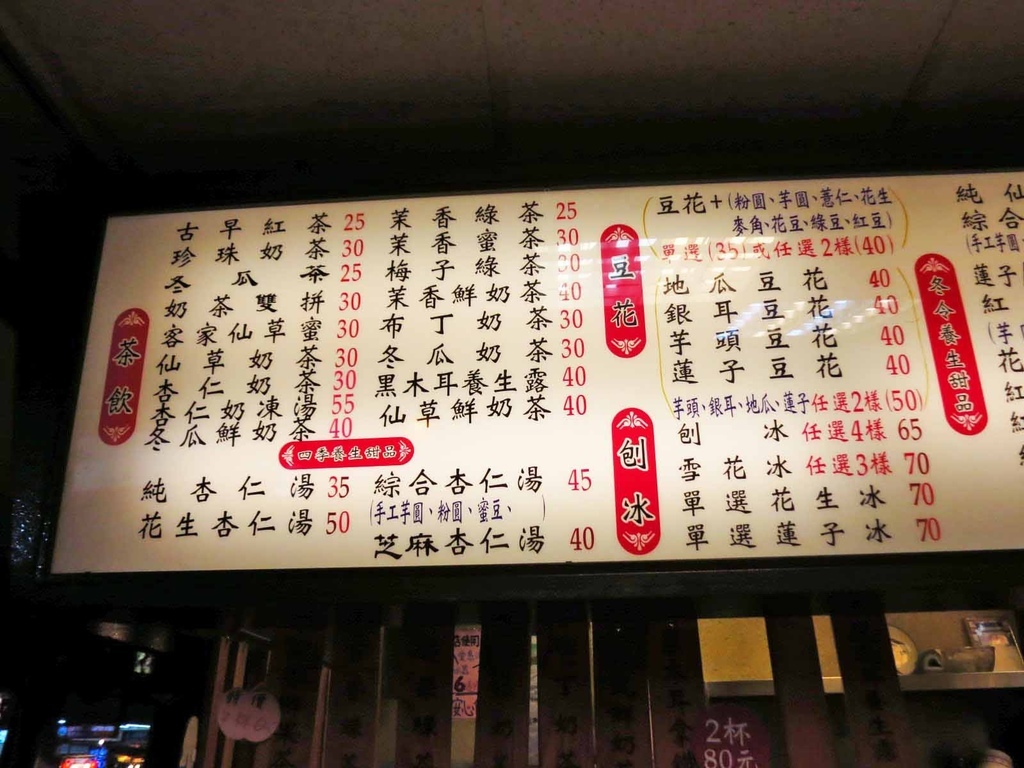 茶飲
古早紅茶 25
珍珠奶茶 30
冬瓜茶 25
奶茶雙拼 30
客家仙草蜜 30
仙草奶茶 30
杏仁奶茶 30
杏仁奶凍湯 55
冬瓜鮮奶茶 40
茉香綠茶 25
茉香蜜茶 30
梅子綠茶 30
茉香鮮奶茶 40
布丁奶茶 30
冬瓜奶茶 30
黑木耳養生露 40
仙草鮮奶茶 40
四季養生甜品
純杏仁湯 35
花生杏仁湯 50
綜合杏仁湯 45
(手工芋圓、粉圓、蜜豆、 )
芝麻杏仁湯 40
豆花
豆花+(粉圓、芋圓、薏仁、花生
麥角、花豆、綠豆、紅豆)
單選(35)或任選2樣(40)
地瓜豆花 40
銀耳豆花 40
芋頭豆花 40
蓮子豆花 40
芋頭、銀耳、地瓜、蓮子任選2樣(50)
刨冰
刨冰 任選4樣 65
雪花冰 任選3樣 70
單選花生冰 70
單選蓮子冰 70
冬令養生甜品
純仙
綜合
(手工芋圓
蓮子
紅
花
紅
2杯
80元